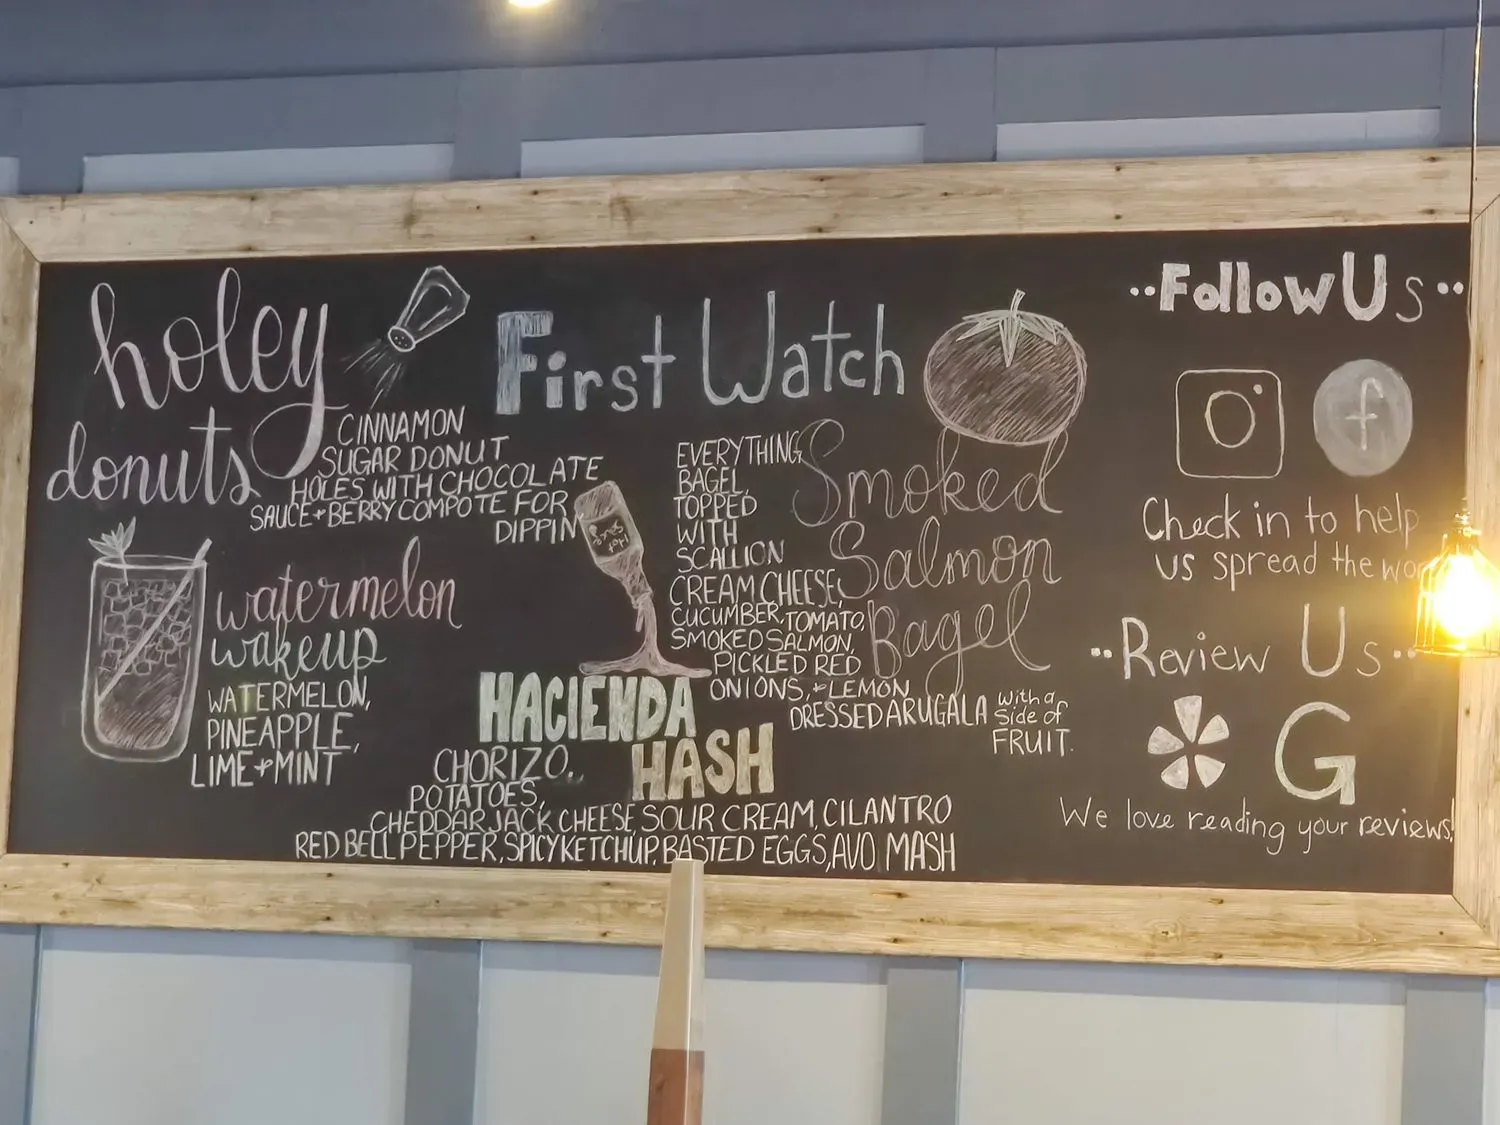 First Watch
holey
donuts
CINNAMON
SUGAR DONUT
HOLES WITH CHOCOLATE
SAUCE + BERRY COMPOTE FOR
DIPPIN
watermelon
wakeup
WATERMELON,
PINEAPPLE,
LIME + MINT
Hot
Sauce
HACIENDA
HASH
CHORIZO,
POTATOES,
CHEDDAR JACK CHEESE, SOUR CREAM, CILANTRO
RED BELL PEPPER, SPICY KETCHUP, BASTED EGGS, AVO MASH
Smoked
Salmon
Bagel
EVERYTHING
BAGEL
TOPPED
WITH
SCALLION
CREAM CHEESE,
CUCUMBER, TOMATO,
SMOKED SALMON,
PICKLED RED
ONIONS, + LEMON
DRESSED ARUGALA with a
side of
FRUIT.
Follow Us
f
Check in to help
us spread the
Review Us
G
We love reading your reviews!